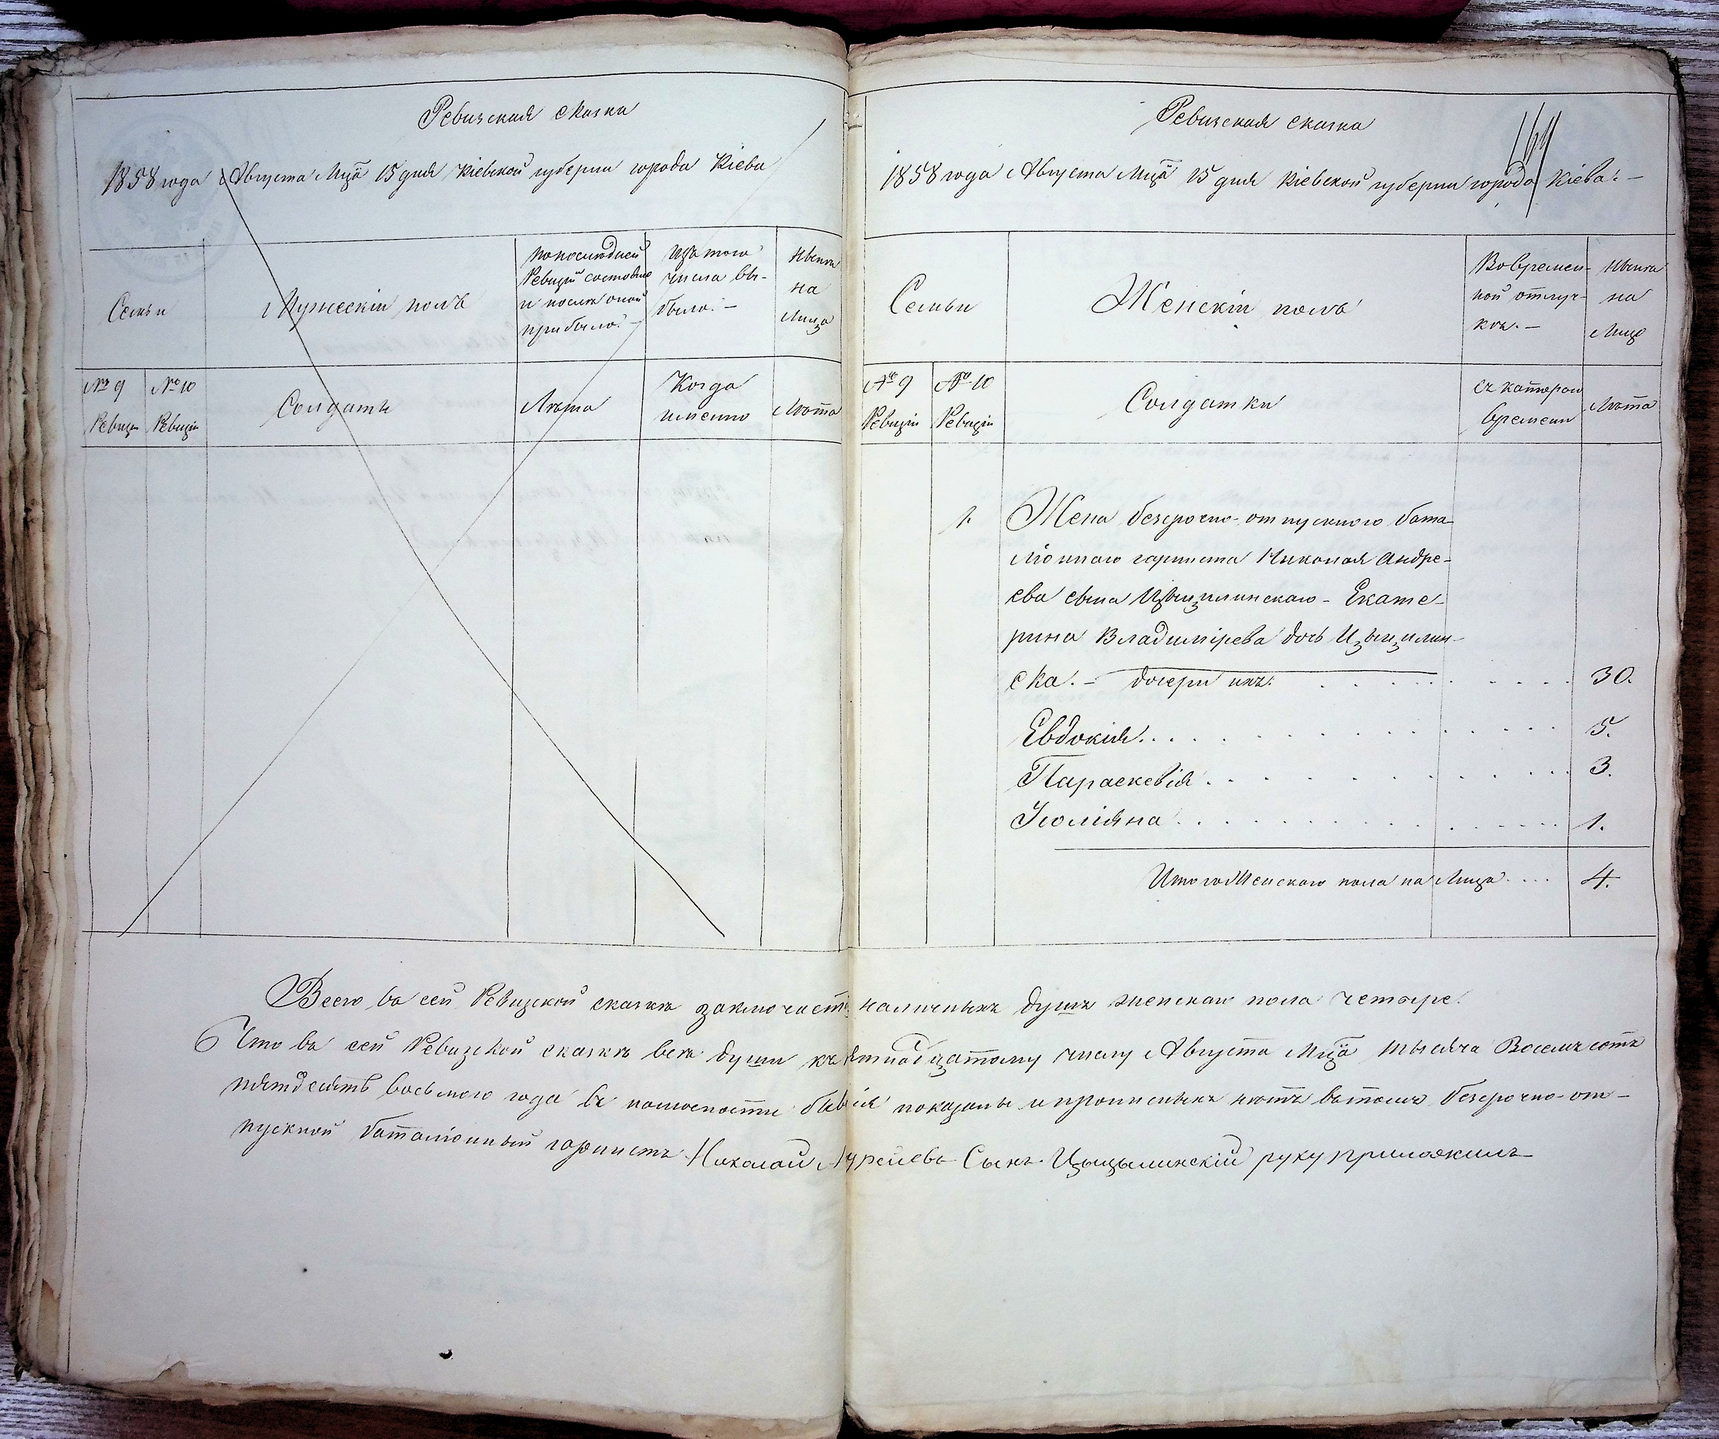 Ревизская сказка
1858 года Августа Мца 15 дня Кіевской губерніи города Кіева
Семьи
Мужескій полъ
По последней Ревизіи состояло и после оной прибыло. –
Изъ того числа выбыло. –
Ныне на Лицо
№ 9 Ревизіи
№ 10 Ревизіи
Солдаты
Лета
Когда именно
Лета
Ревизская сказка
1858 года Августа Мца 15 дня Кіевской губерніи города Кіева. –
Семьи
Женскій полъ
Во времен-
ной отлуч-
ке. –
Ныне
на
Лице
№ 9
Ревизіи
№ 10
Ревизіи
Солдатки
Съ котораго
времени
Лета
1. Жена безсрочно-отпускного бата-
ліоннаго горниста Николая Андре-
ева сына Цыцилинскаго – Екате-
рина Владимірева дочь Цыцилин-
ска. – дочери ихъ: 30.
Евдокія 5.
Параскевія 3.
Уліяна 1.
Итого Женскаго пола на Лицо 4.
Всего въ сей Ревизской сказке заключается наличныхъ душъ женскаго пола четыре.
Что въ сей Ревизской сказке все души къ пятнадцатому числу Августа Мца тысяча Восемъ сотъ
пятдесятъ восьмого года въ наличности бывшія показаны и прописныхъ нетъ въ томъ безсрочно-от-
пускной баталіонный горнистъ Николай Андреевъ Сынъ Цыцылинскій руку приложилъ